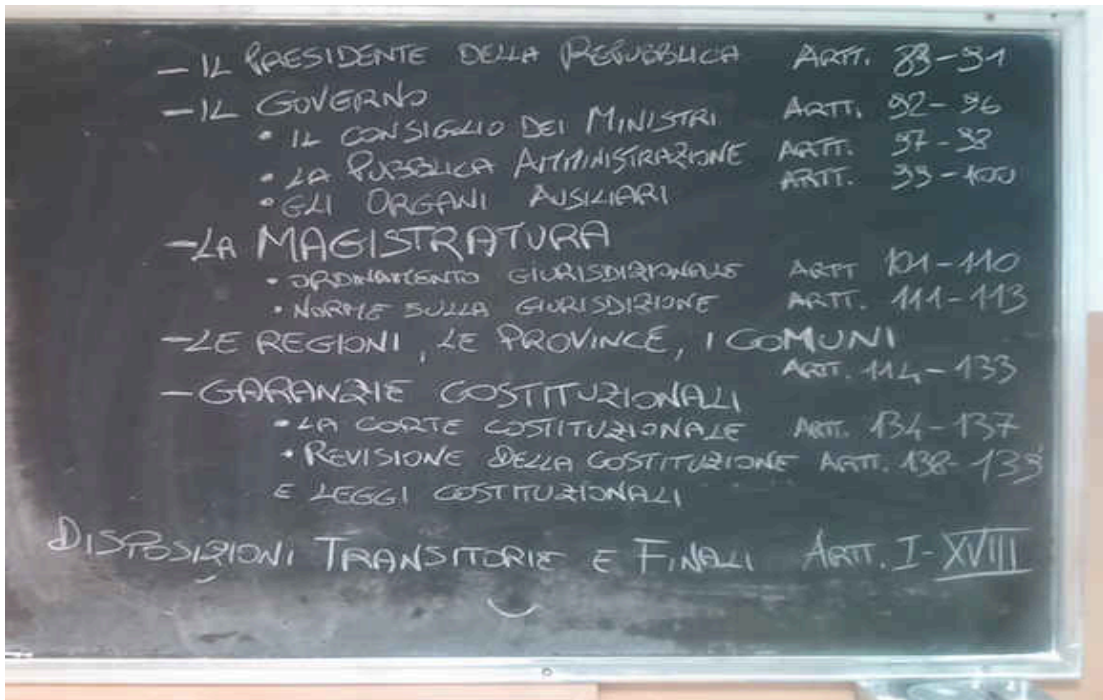 - IL PRESIDENTE DELLA REPUBBLICA ARTT. 83-91
- IL GOVERNO
• IL CONSIGLIO DEI MINISTRI ARTT. 92-96
• LA PUBBLICA AMMINISTRAZIONE ARTT. 97-98
• GLI ORGANI AUSILIARI ARTT. 99-100
- LA MAGISTRATURA
• ORDINAMENTO GIURISDIZIONALE ARTT 101-110
• NORME SULLA GIURISDIZIONE ARTT. 111-113
- LE REGIONI, LE PROVINCE, I COMUNI
ARTT. 114-133
- GARANZIE COSTITUZIONALI
• LA CORTE COSTITUZIONALE ARTT. 134-137
• REVISIONE DELLA COSTITUZIONE ARTT. 138-139
E LEGGI COSTITUZIONALI
DISPOSIZIONI TRANSITORIE E FINALI ARTT. I-XVIII